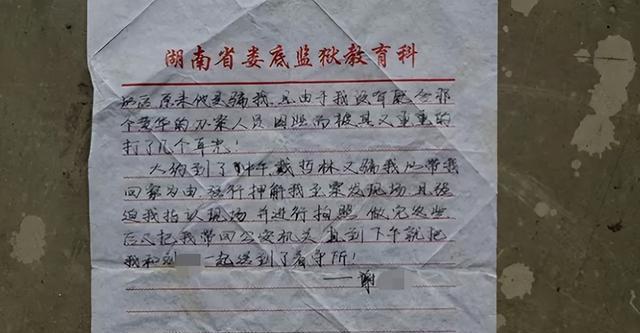 湖南省娄底监狱教育科
原来他是骗我，且由于我没有配合那
个黄华的办案人员因照而被其又重重的
打了几个耳光！
大约到了中午，戴哲林又骗我以带我
回家为由强行押解我至案发现场，且强
迫我指认现场并进行拍照，做完这些
后又把我带回公安机关，直到下午就把
我和刘 一起送到了看守所！
——谢